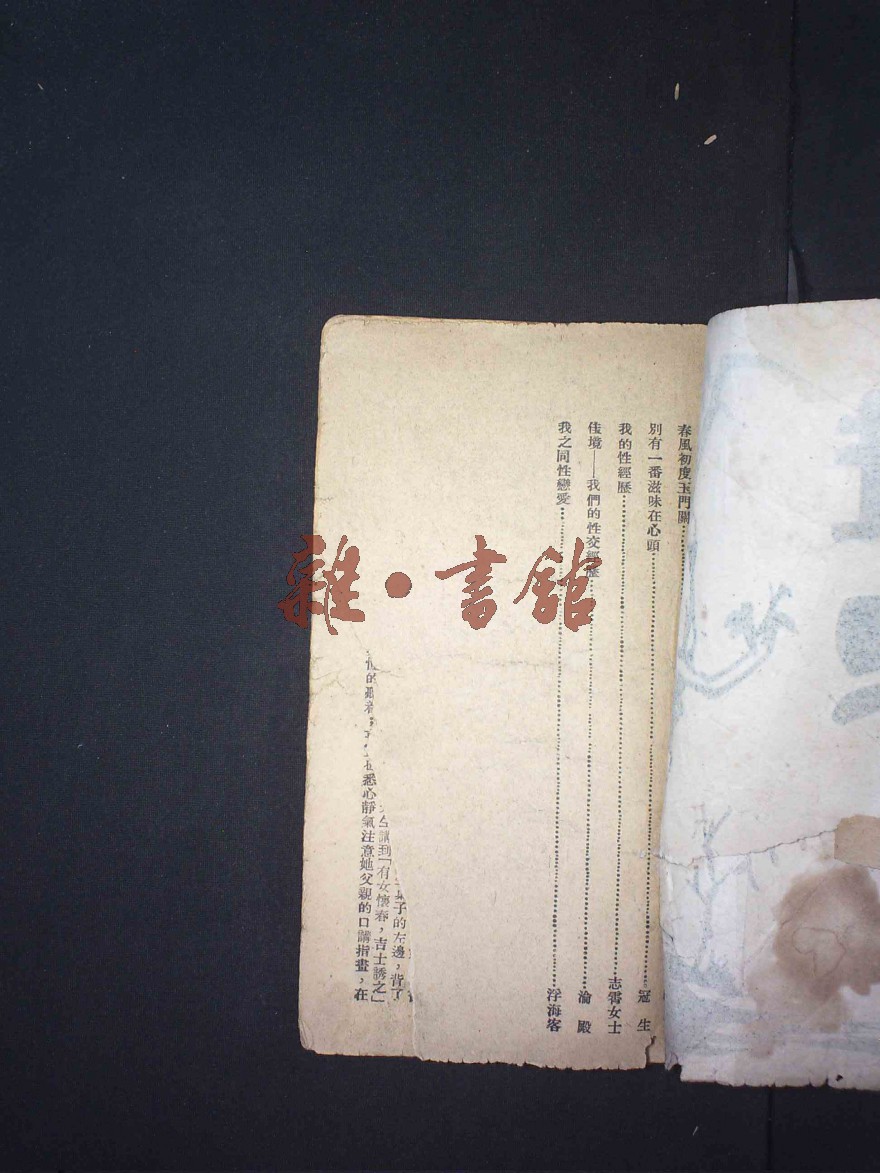 春風初度玉門關
別有一番滋味在心頭……冠生
我的性經歷……志霄女士
佳境——我們的性交經歷……瀹殿
我之同性戀愛……浮海客
雜·書館
子的左邊，背了
講到「有女懷春，吉士誘之」
悉心靜氣注意她父親的口講指畫，在